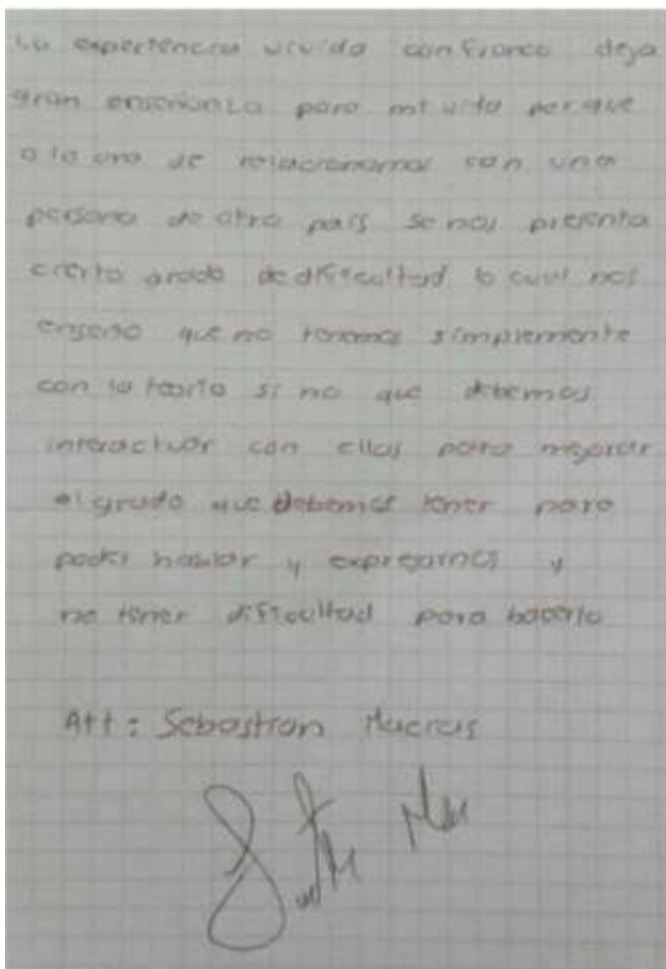 La experiencia vivida con Franco deja
gran enseñanza para mi vida por que
a la ora de relacionarnos con una
persona de otro país se nos presenta
cierto grado de dificultad lo cual nos
enseño que no tenemos simplemente
con la teoria si no que debemos
interactuar con ellas para mejorar
el grado que debemos tener para
poder hablar y expresarnos y
no tener dificultad para hacerlo
Att: Sebastian Macias